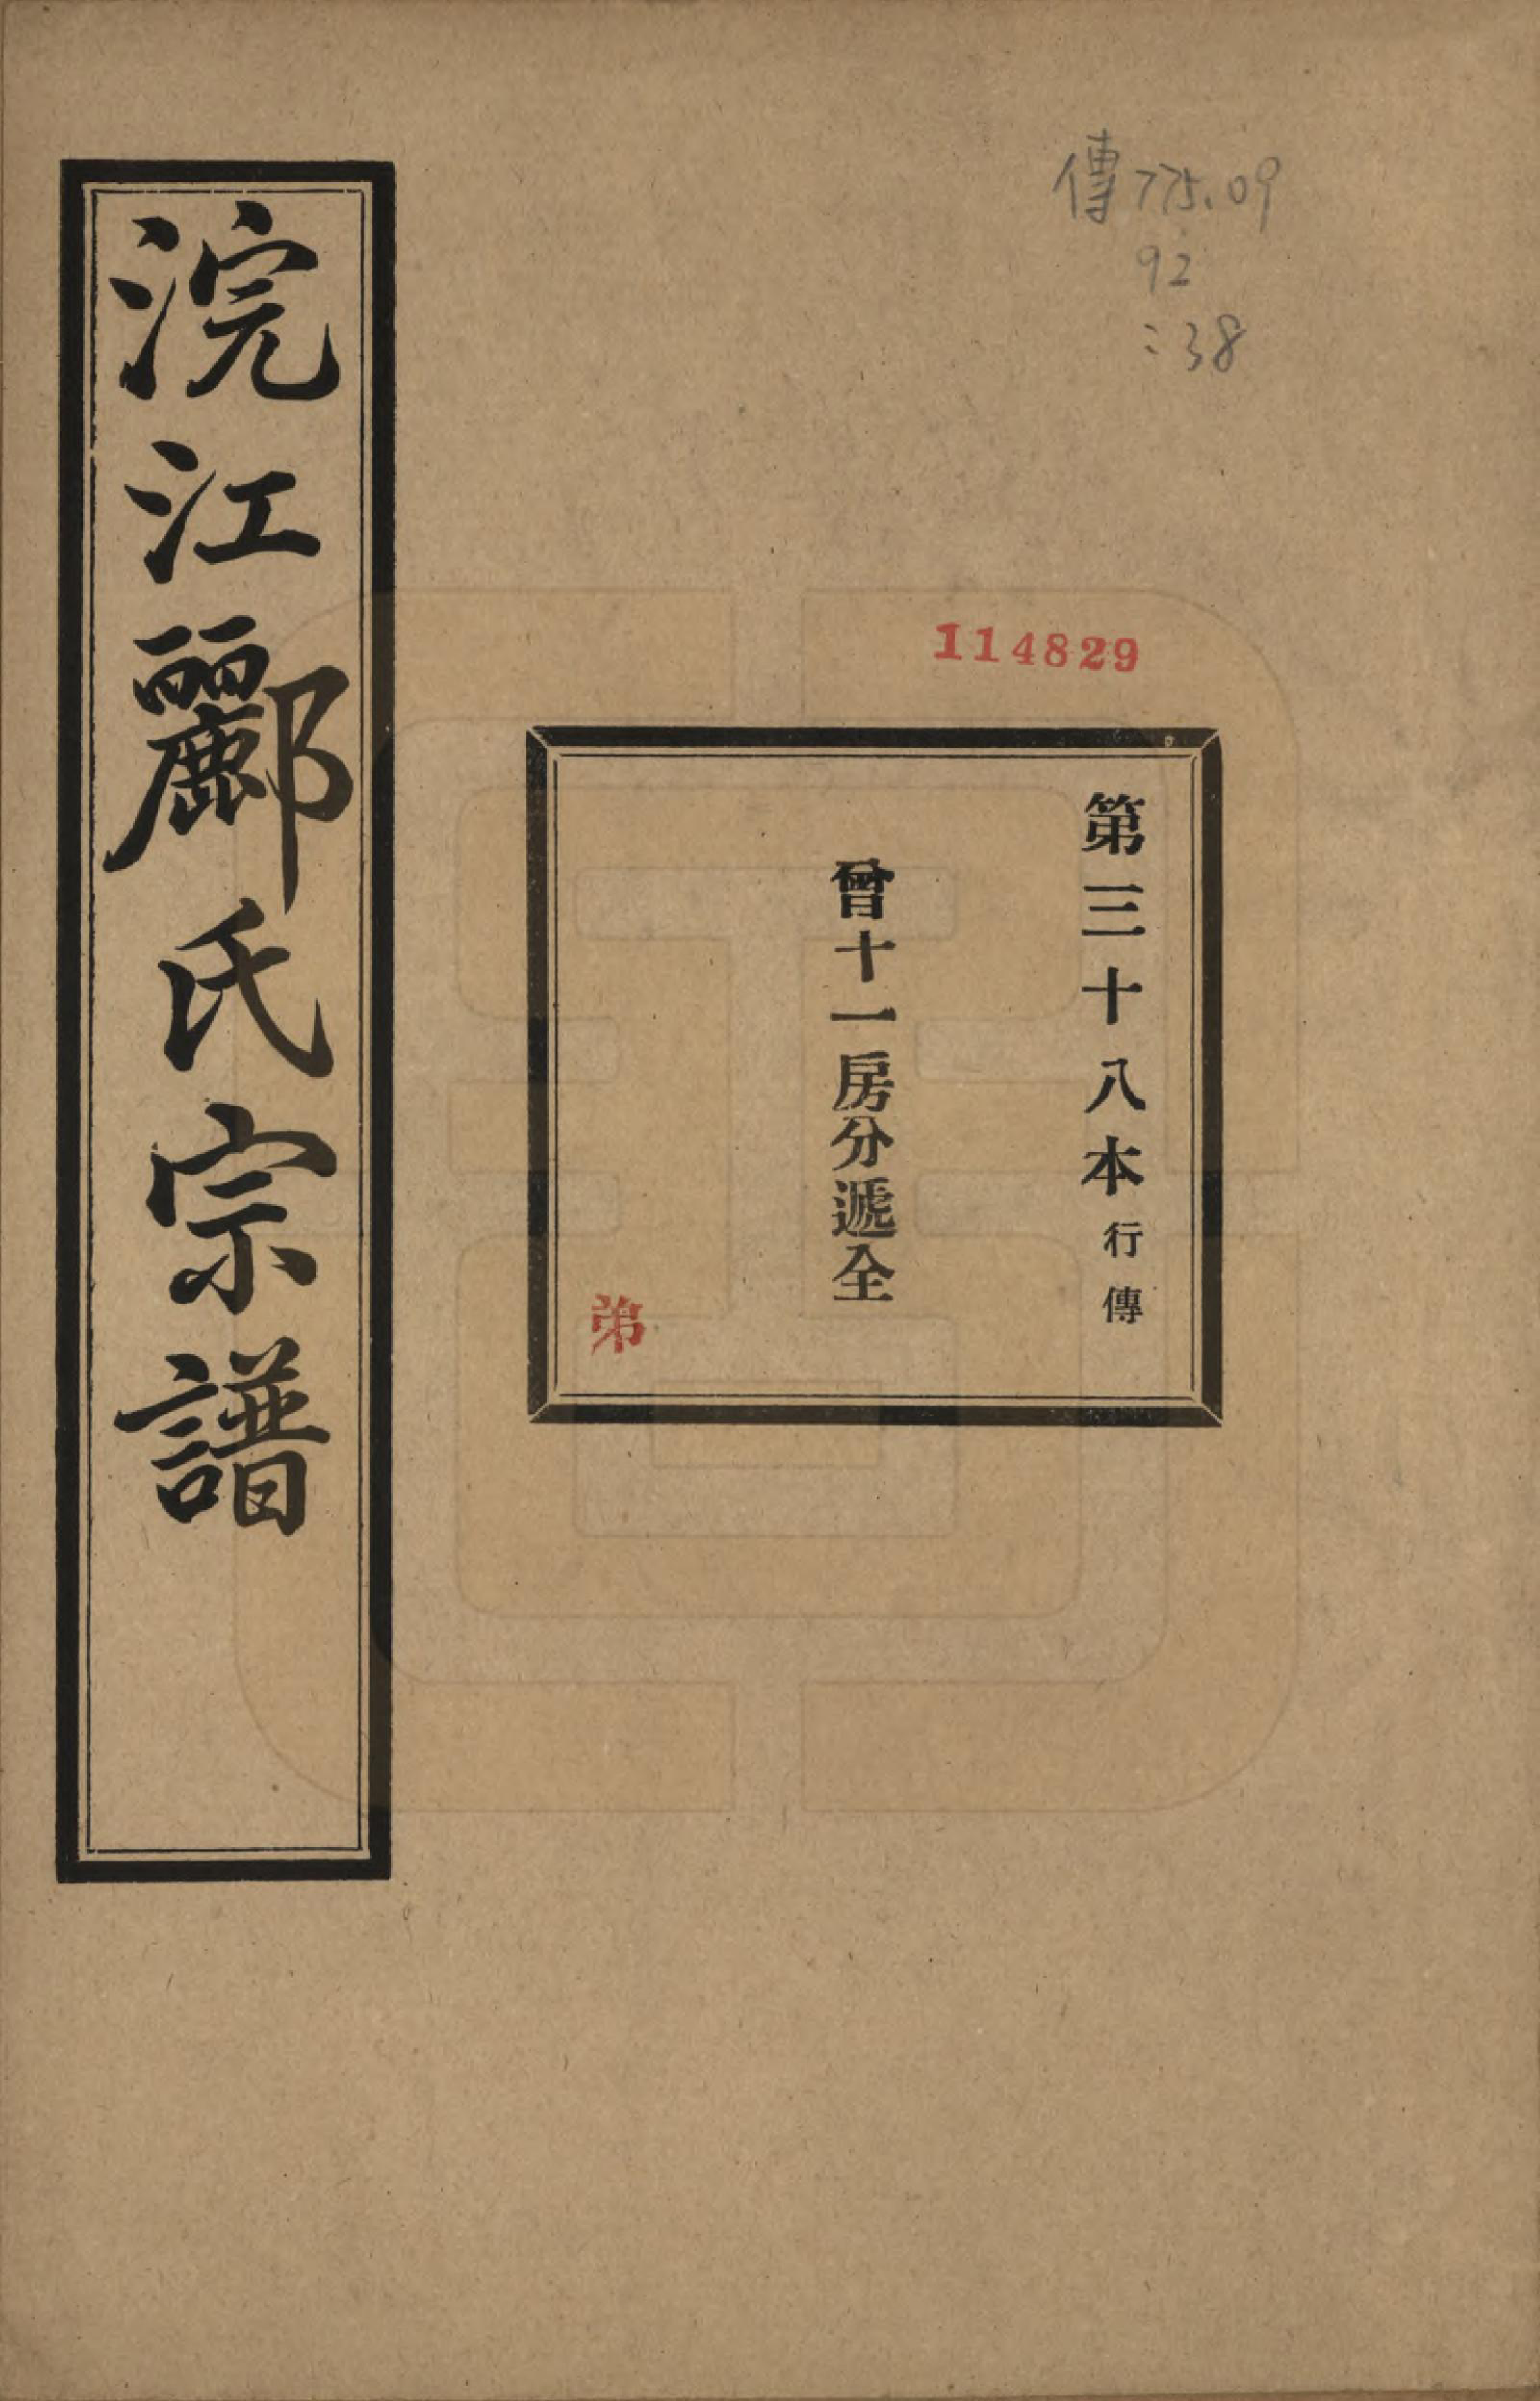 傳775.09
92
:38
114829
第三十八本行傳
曾十一房分遞全
弟
浣江酈氏宗譜